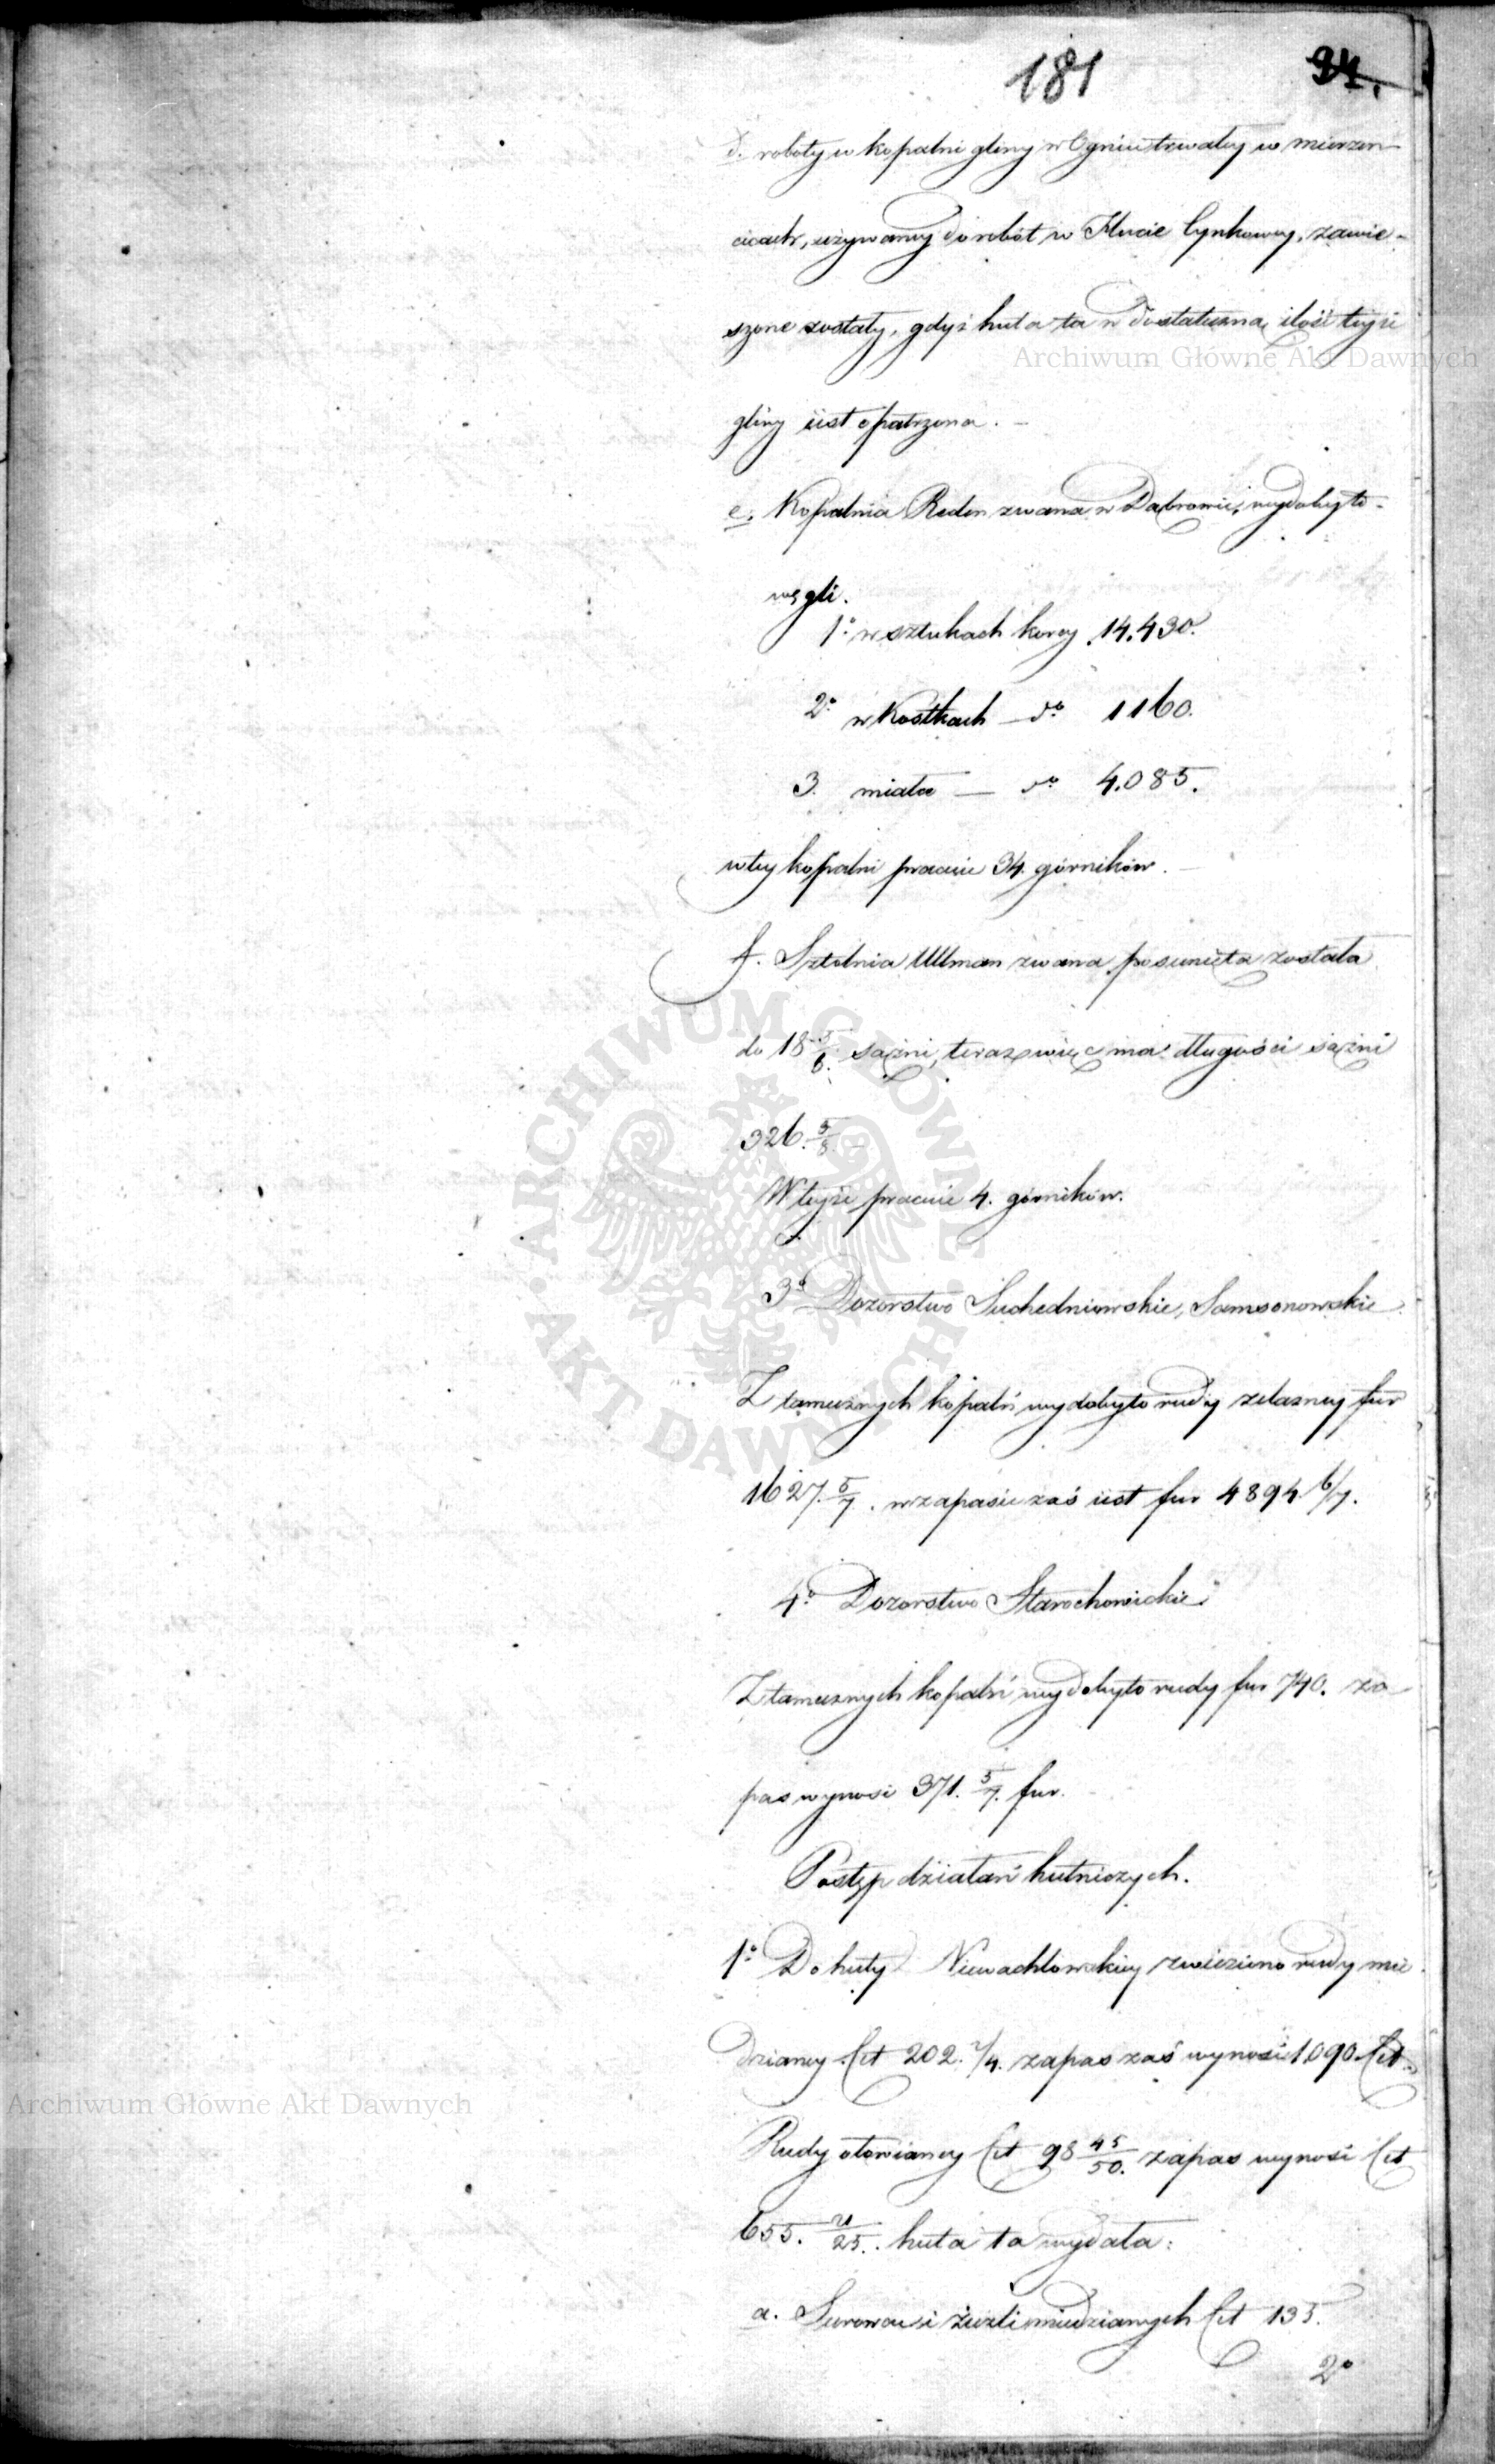 181 94.
d. roboty w kopalni gliny w Ogniu trwałey w mierzen-
cicach, używaney do robót w Hucie Cynkowey, zawie-
szone zostały, gdyż huta ta w dostateczną ilość teyże
gliny iest opatrzona. —
e. Kopalnia Reden zwana w Dąbrowie, wydobyto-
węgli.
1º w sztukach korcy 14.430.
2º w Kostkach — dº 1160.
3. miału — dº 4.085.
w tey kopalni pracuie 34. górników. —
f. Sztolnia Ullman zwana posunięta została
do 18 5/8. sążni, teraz więc ma długości sążni
326. 5/8. —
W teyże pracuie 4. górników.
3º Dozorstwo Suchedniowskie, Samsonowskie.
Z tamecznych kopalń wydobyto rudy żelazney fur
1627. 5/7. w zapasie zaś iest fur 4894. 6/7.
4º Dozorstwo Starachowickie.
Z tamecznych kopalń wydobyto rudy fur 740. za-
pas wynosi 371. 5/7. fur.
Postęp działań hutniczych.
1º Do huty Niewachlowskiey zwieziono rudy mie-
dzianey Cet 202. /4. zapas zaś wynosi 1090 Cet.
Rudy ołowianey Cet 98 45/50. zapas wynosi Cet
655. 21/25. huta ta wydała:
a. Surowcu i żużli miedzianych Cet 135.
2º
Archiwum Główne Akt Dawnych
Archiwum Główne Akt Dawnych
ARCHIWUM GŁÓWNE AKT DAWNYCH